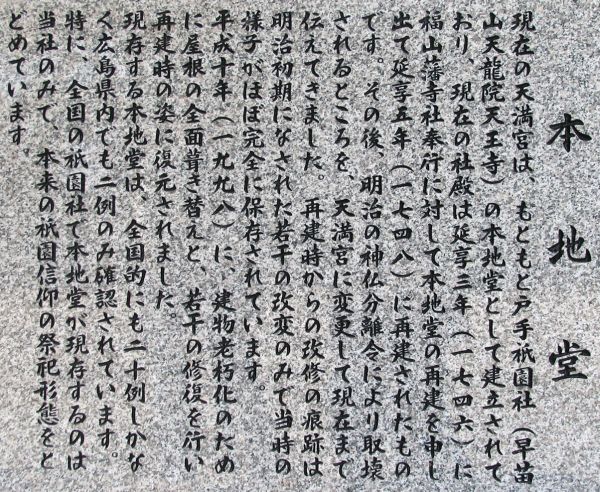 本地堂
現在の天満宮は、もともと戸手祇園社（早苗
山天龍院天王寺）の本地堂として建立されて
おり、現在の社殿は延享三年（一七四六）に
福山藩寺社奉行に対して本地堂の再建を申し
出て延享五年（一七四八）に再建されたもの
です。その後、明治の神仏分離令により取壊
されるところを、天満宮に変更して現在まで
伝えてきました。再建時からの改修の痕跡は
明治初期になされた若干の改変のみで当時の
様子がほぼ完全に保存されています。
平成十年（一九九八）に、建物老朽化のため
に屋根の全面葺き替えと、若干の修復を行い
再建時の姿に復元されました。
現存する本地堂は、全国的にも二十例しかな
く広島県内でも二例のみ確認されています。
特に、全国の祇園社で本地堂が現存するのは
当社のみで、本来の祇園信仰の祭祀形態をと
どめています。